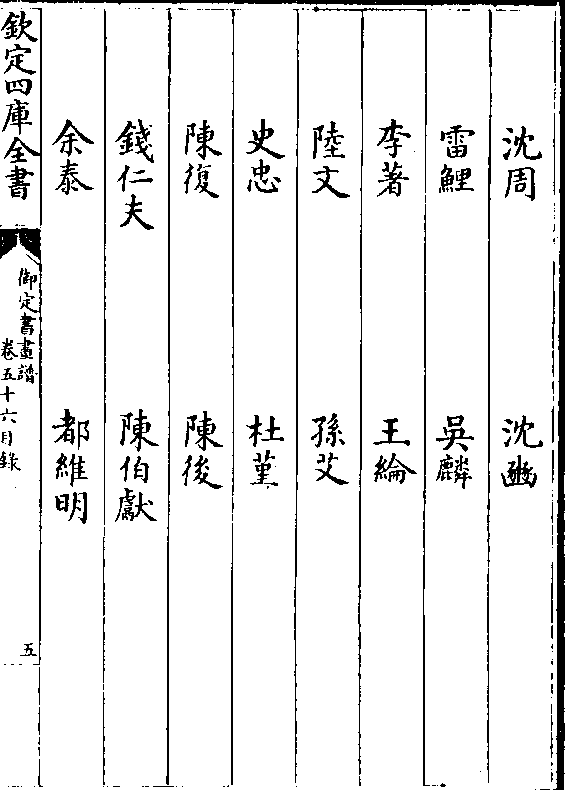 沈周　沈豳
雷鯉　吳麟
李著　王綸
陸文　孫艾
史忠　杜堇
陳復　陳後
錢仁夫　陳伯獻
余泰　都維明
欽定四庫全書
御定書畫譜
卷五十六目錄
五